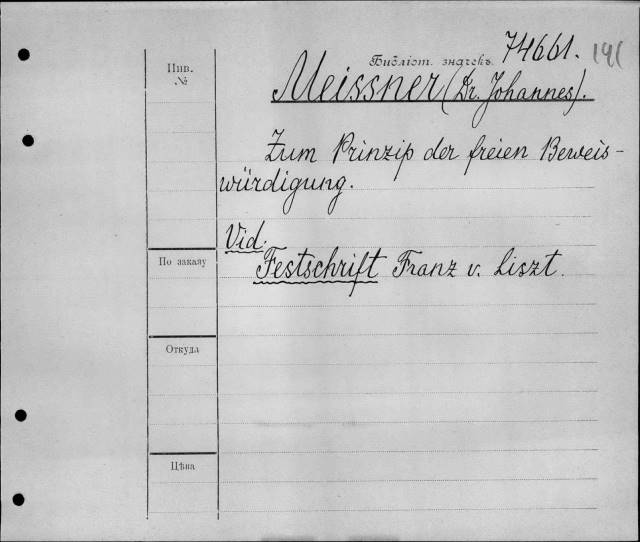 74661.
Инв. №
Библіот. значекъ
Meissner (Dr. Johannes).
Zum Prinzip der freien Beweis-
würdigung.
Vid.
По заказу
Festschrift Franz v. Liszt.
Откуда
Цѣна